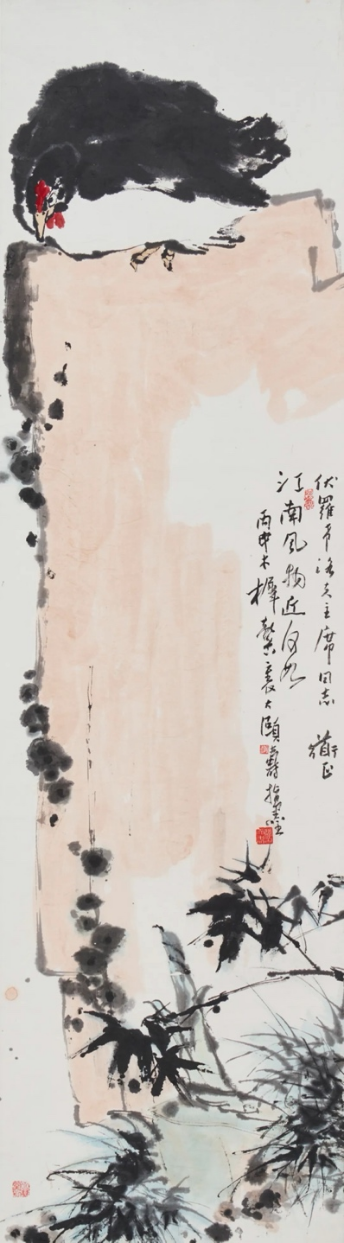 伏羅希洛夫主席同志 衡正
江南風物近何如
丙申木樨蒸裏大頤壽指墨